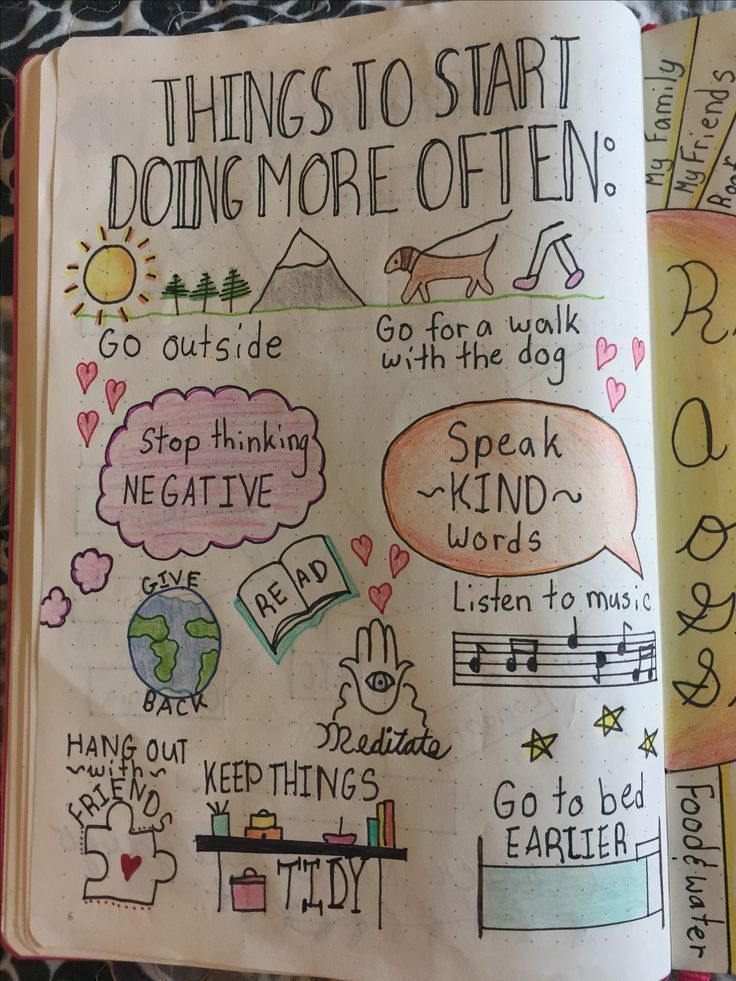 THINGS TO START
DOING MORE OFTEN:
Go outside
Go for a walk
with the dog
Stop thinking
NEGATIVE
Speak
~KIND~
words
GIVE
BACK
READ
Listen to music
Meditate
HANG OUT
~with~
FRIENDS
KEEP THINGS
TIDY
Go to bed
EARLIER
6
My Family
My Friends
Roof
R
a
o
S
S
Food & water